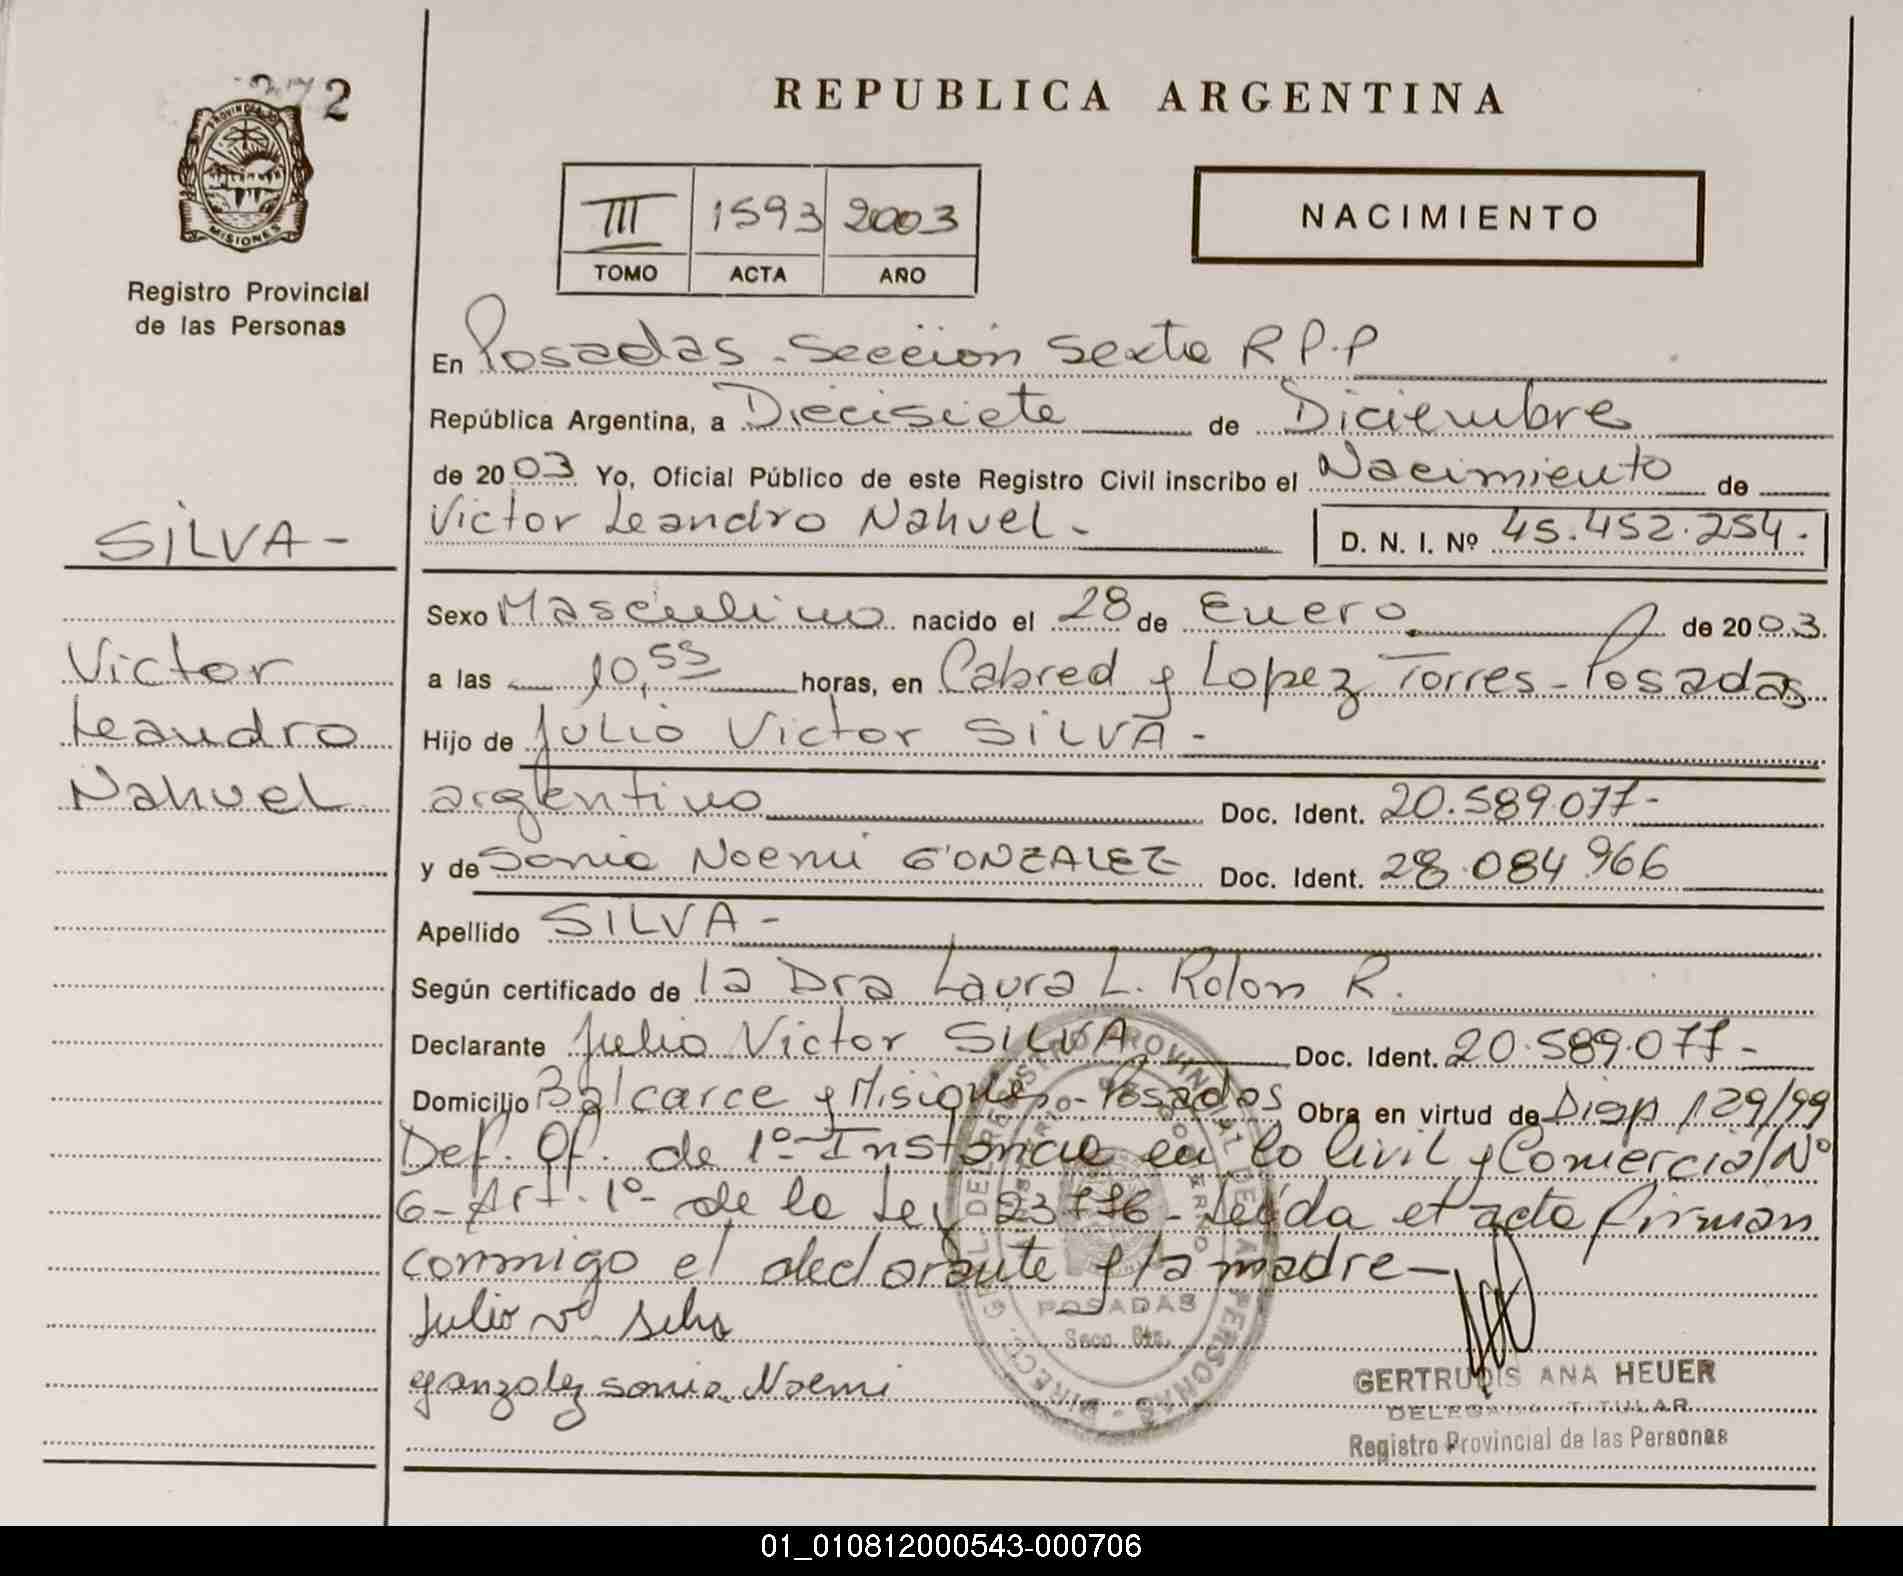 272
PROVINCIA DE
MISIONES
Registro Provincial
de las Personas
SILVA -
Victor
Leandro
Nahuel
REPUBLICA ARGENTINA
III 1593 2003
TOMO ACTA AÑO
NACIMIENTO
En Posadas - Sección Sexta R P.P
República Argentina, a Diecisiete de Diciembre
de 20 03 Yo, Oficial Público de este Registro Civil inscribo el Nacimiento de
Victor Leandro Nahuel - D. N. I. Nº 45.452.254.-
Sexo Masculino nacido el 28 de Enero de 20 03.
a las 10,55 horas, en Cabred y Lopez Torres - Posadas
Hijo de Julio Victor SILVA -
argentino Doc. Ident. 20.589.077-
y de Sonia Noemi GONZALEZ Doc. Ident. 28.084.966
Apellido SILVA -
Según certificado de la Dra Laura L. Rolon R.
Declarante Julio Victor SILVA Doc. Ident. 20.589.077-
Domicilio Balcarce y Misiones - Posadas Obra en virtud de Disp 129/99
Def. Of. de 1º Instancia en lo Civil y Comercial Nº
6 - Art. 1º - de la Ley 23776 - Leída el acta firman
conmigo el declarante y la madre -
Julio V. Silva
gonzalez sonia Noemi
POSADAS
GERTRUDIS ANA HEUER
DELEGADA TITULAR
Registro Provincial de las Personas
01_010812000543-000706